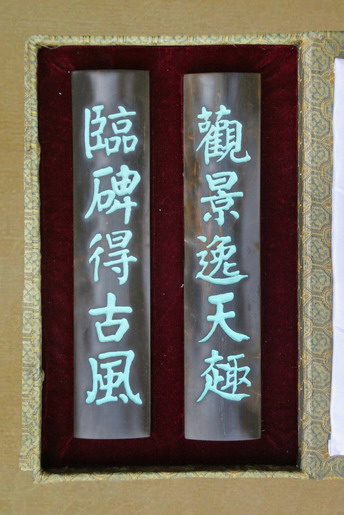 觀景逸天趣
臨碑得古風